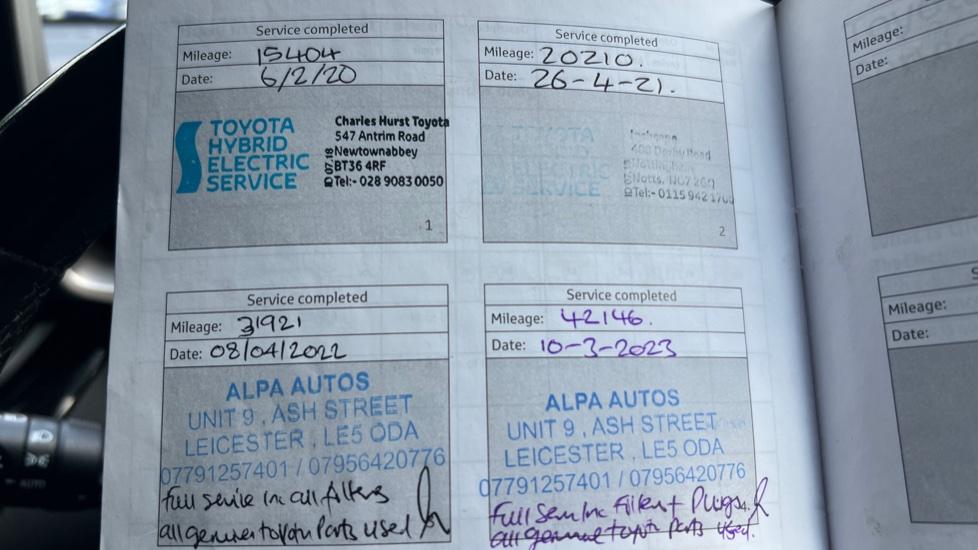 Service completed
Mileage: 15404
Date: 6/2/20
TOYOTA
HYBRID
ELECTRIC
SERVICE
Charles Hurst Toyota
547 Antrim Road
Newtownabbey
BT36 4RF
Tel:- 028 9083 0050
1
Service completed
Mileage: 20210.
Date: 26-4-21.
TOYOTA
ELECTRIC
SERVICE
400 Derby Road
Nottingham
Notts. NG7 2GQ
Tel:- 0115 942 1700
2
Service completed
Mileage: 31921
Date: 08/04/2022
ALPA AUTOS
UNIT 9, ASH STREET
LEICESTER, LE5 0DA
07791257401 / 07956420776
Full service inc all Filters
all genuine toyota Parts used
Service completed
Mileage: 42146.
Date: 10-3-2023
ALPA AUTOS
UNIT 9, ASH STREET
LEICESTER, LE5 0DA
07791257401 / 07956420776
Full serv inc Filters + Plugs.
all genuine toyota Parts used.
Mileage:
Date:
Mileage:
Date: